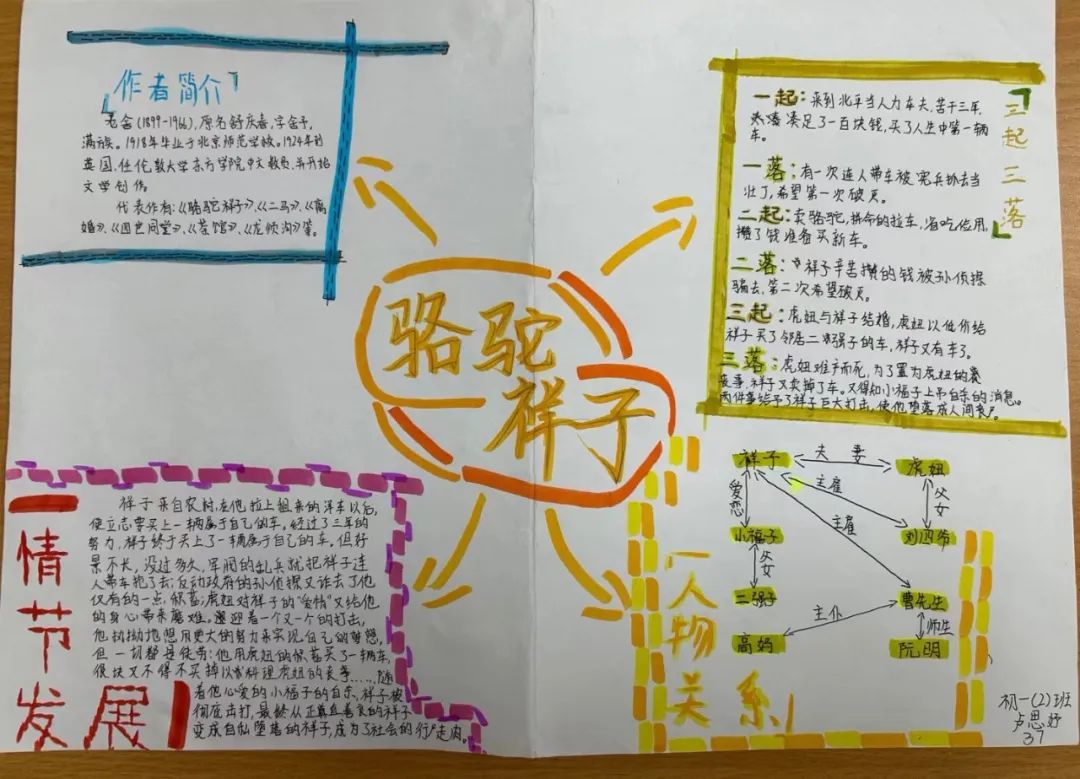 作者简介
老舍(1899-1966),原名舒庆春,字舍予,
满族。1918年毕业于北京师范学校。1924年到
英国,任伦敦大学东方学院中文教员,并开始
文学创作
代表作有:《骆驼祥子》、《二马》、《离
婚》、《四世同堂》、《茶馆》、《龙须沟》等。
三起三落
一起:来到北平当人力车夫,苦干三年,
凑足了一百块钱,买了人生中第一辆
车。
一落:有一次连人带车被宪兵抓去当
壮丁,希望第一次破灭。
二起:卖骆驼,拼命的拉车,省吃俭用,
攒了钱准备买新车。
二落:祥子辛苦攒的钱被孙侦探
骗去,第二次希望破灭。
三起:虎妞与祥子结婚,虎妞以低价给
祥子买了邻居二强子的车,祥子又有车了。
三落:虎妞难产而死,为了置办虎妞的丧
丧事,祥子又卖掉了车。又得知小福子上吊自杀的消息。
两件事给予了祥子巨大打击,使他堕落成人间
骆驼
祥子
情节发展
祥子来自农村,在他拉上租来的洋车以后,
便立志要买上一辆属于自己的车。经过了三年的
努力,祥子终于买上了一辆属于自己的车。但好
景不长,没过多久,军阀的乱兵就把祥子连
人带车把了去;反动政府的孙侦探又诈去了他
仅有的一点积蓄;虎妞对祥子的“爱情”又给他
的身心带来磨难。遭迎着一个又一个的打击,
他执拗地想用更大的努力来实现自己的梦想,
但一切都是徒劳:他用虎妞的积蓄买了一辆车,
很快又不得不卖掉以料理虎妞的丧事……随
着他心爱的小福子的自杀,祥子被
彻底击打,最终从正直且善良的祥子
变成自私堕落的祥子,成为了社会的行尸走肉。
人物关系
祥子
夫妻
虎妞
爱恋
主雇
父女
主雇
小福子
刘四爷
父女
二强子
曹先生
主仆
师生
高妈
阮明
初一(2)班
卢思妤
37